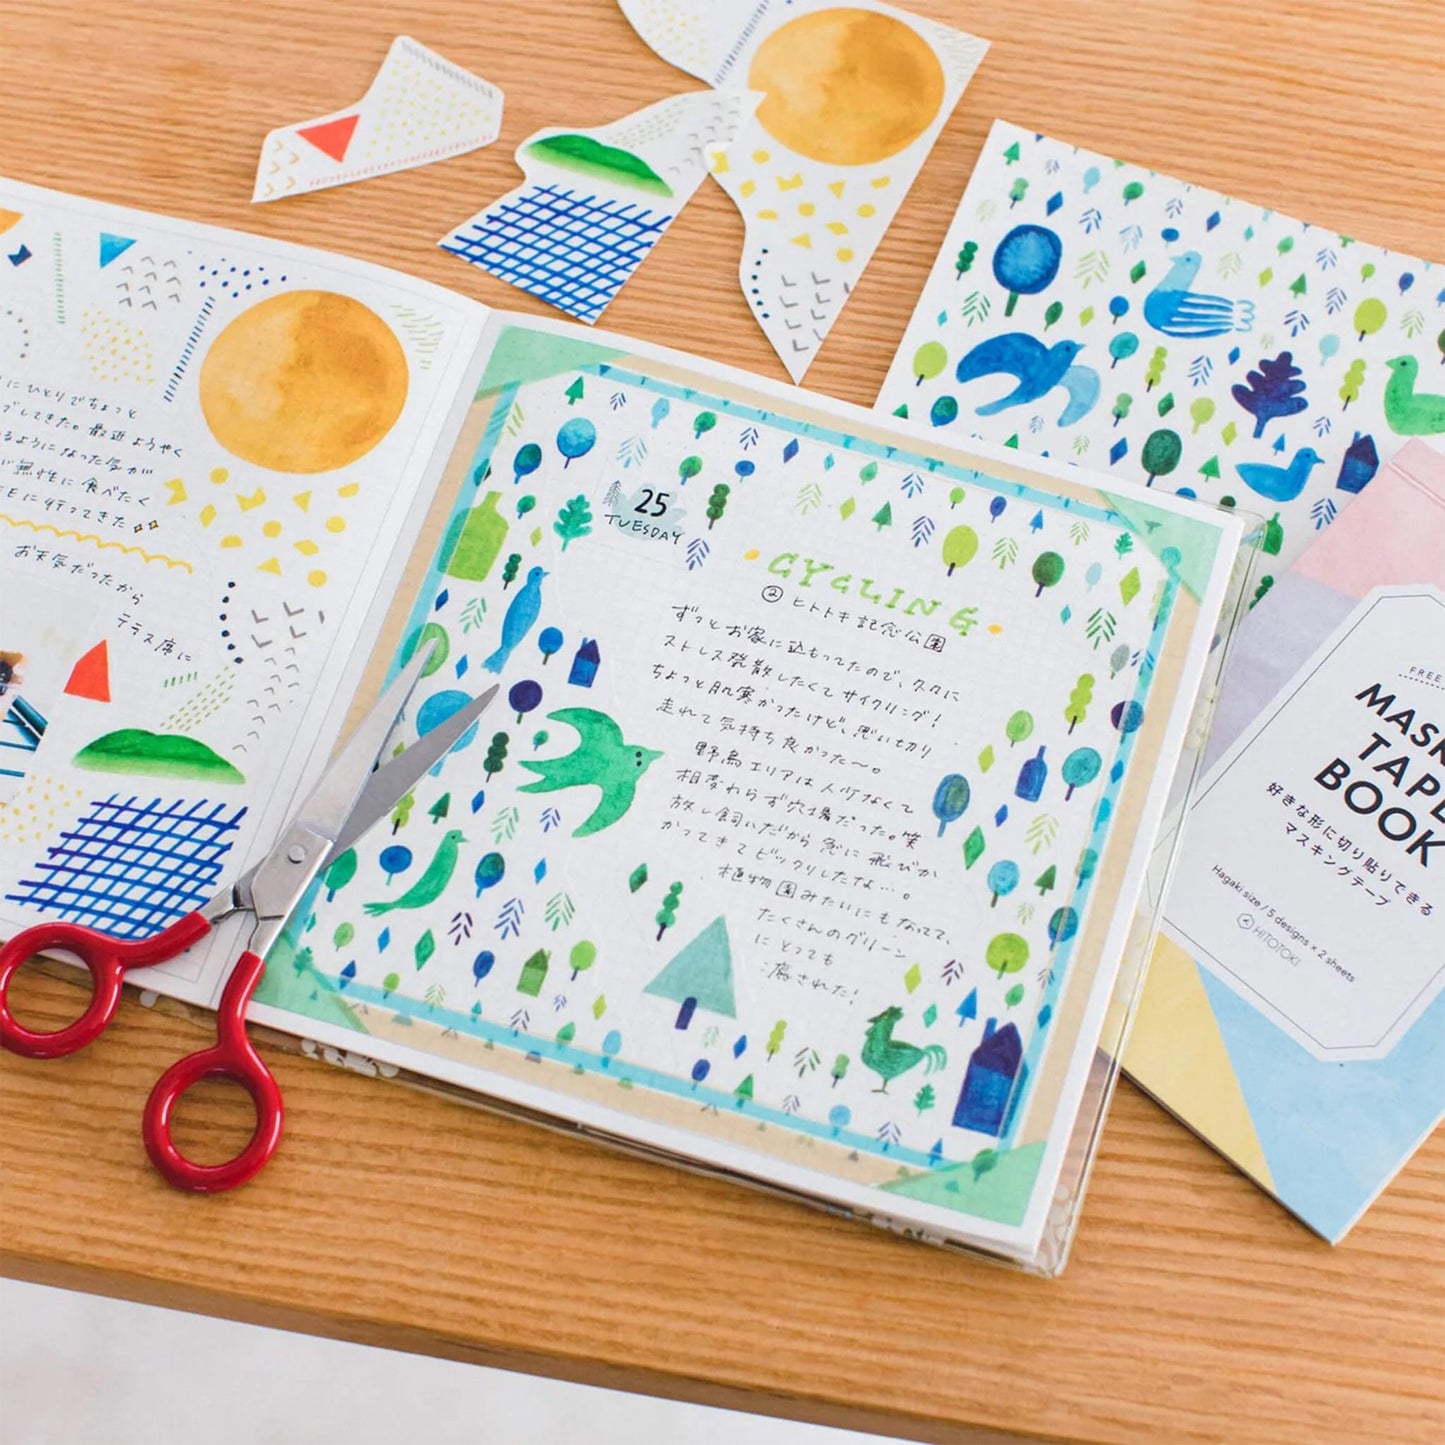 にひとりでちょっと
してきた。最近ようやく
るようになった気が
無性に食べたく
Eに行ってきた
お天気だったから
テラス席に
25
TUESDAY
CYCLING
② ヒトトキ記念公園
ずっとお家に込もってたので、久々に
ストレス発散したくてサイクリング!
ちょっと肌寒かったけど、思い切り
走れて気持ち良かった〜。
野鳥エリアは人少なくて
相変わらず穴場だった。笑
放し飼いだから急に飛びか
かってきてビックリしたな…。
植物園みたいにもなってて、
たくさんのグリーン
にとっても
癒された!
FREE
MASK
TAPE
BOOK
好きな形に切り貼りできる
マスキングテープ
Hagaki size / 5 designs × 2 sheets
HITOTOKI